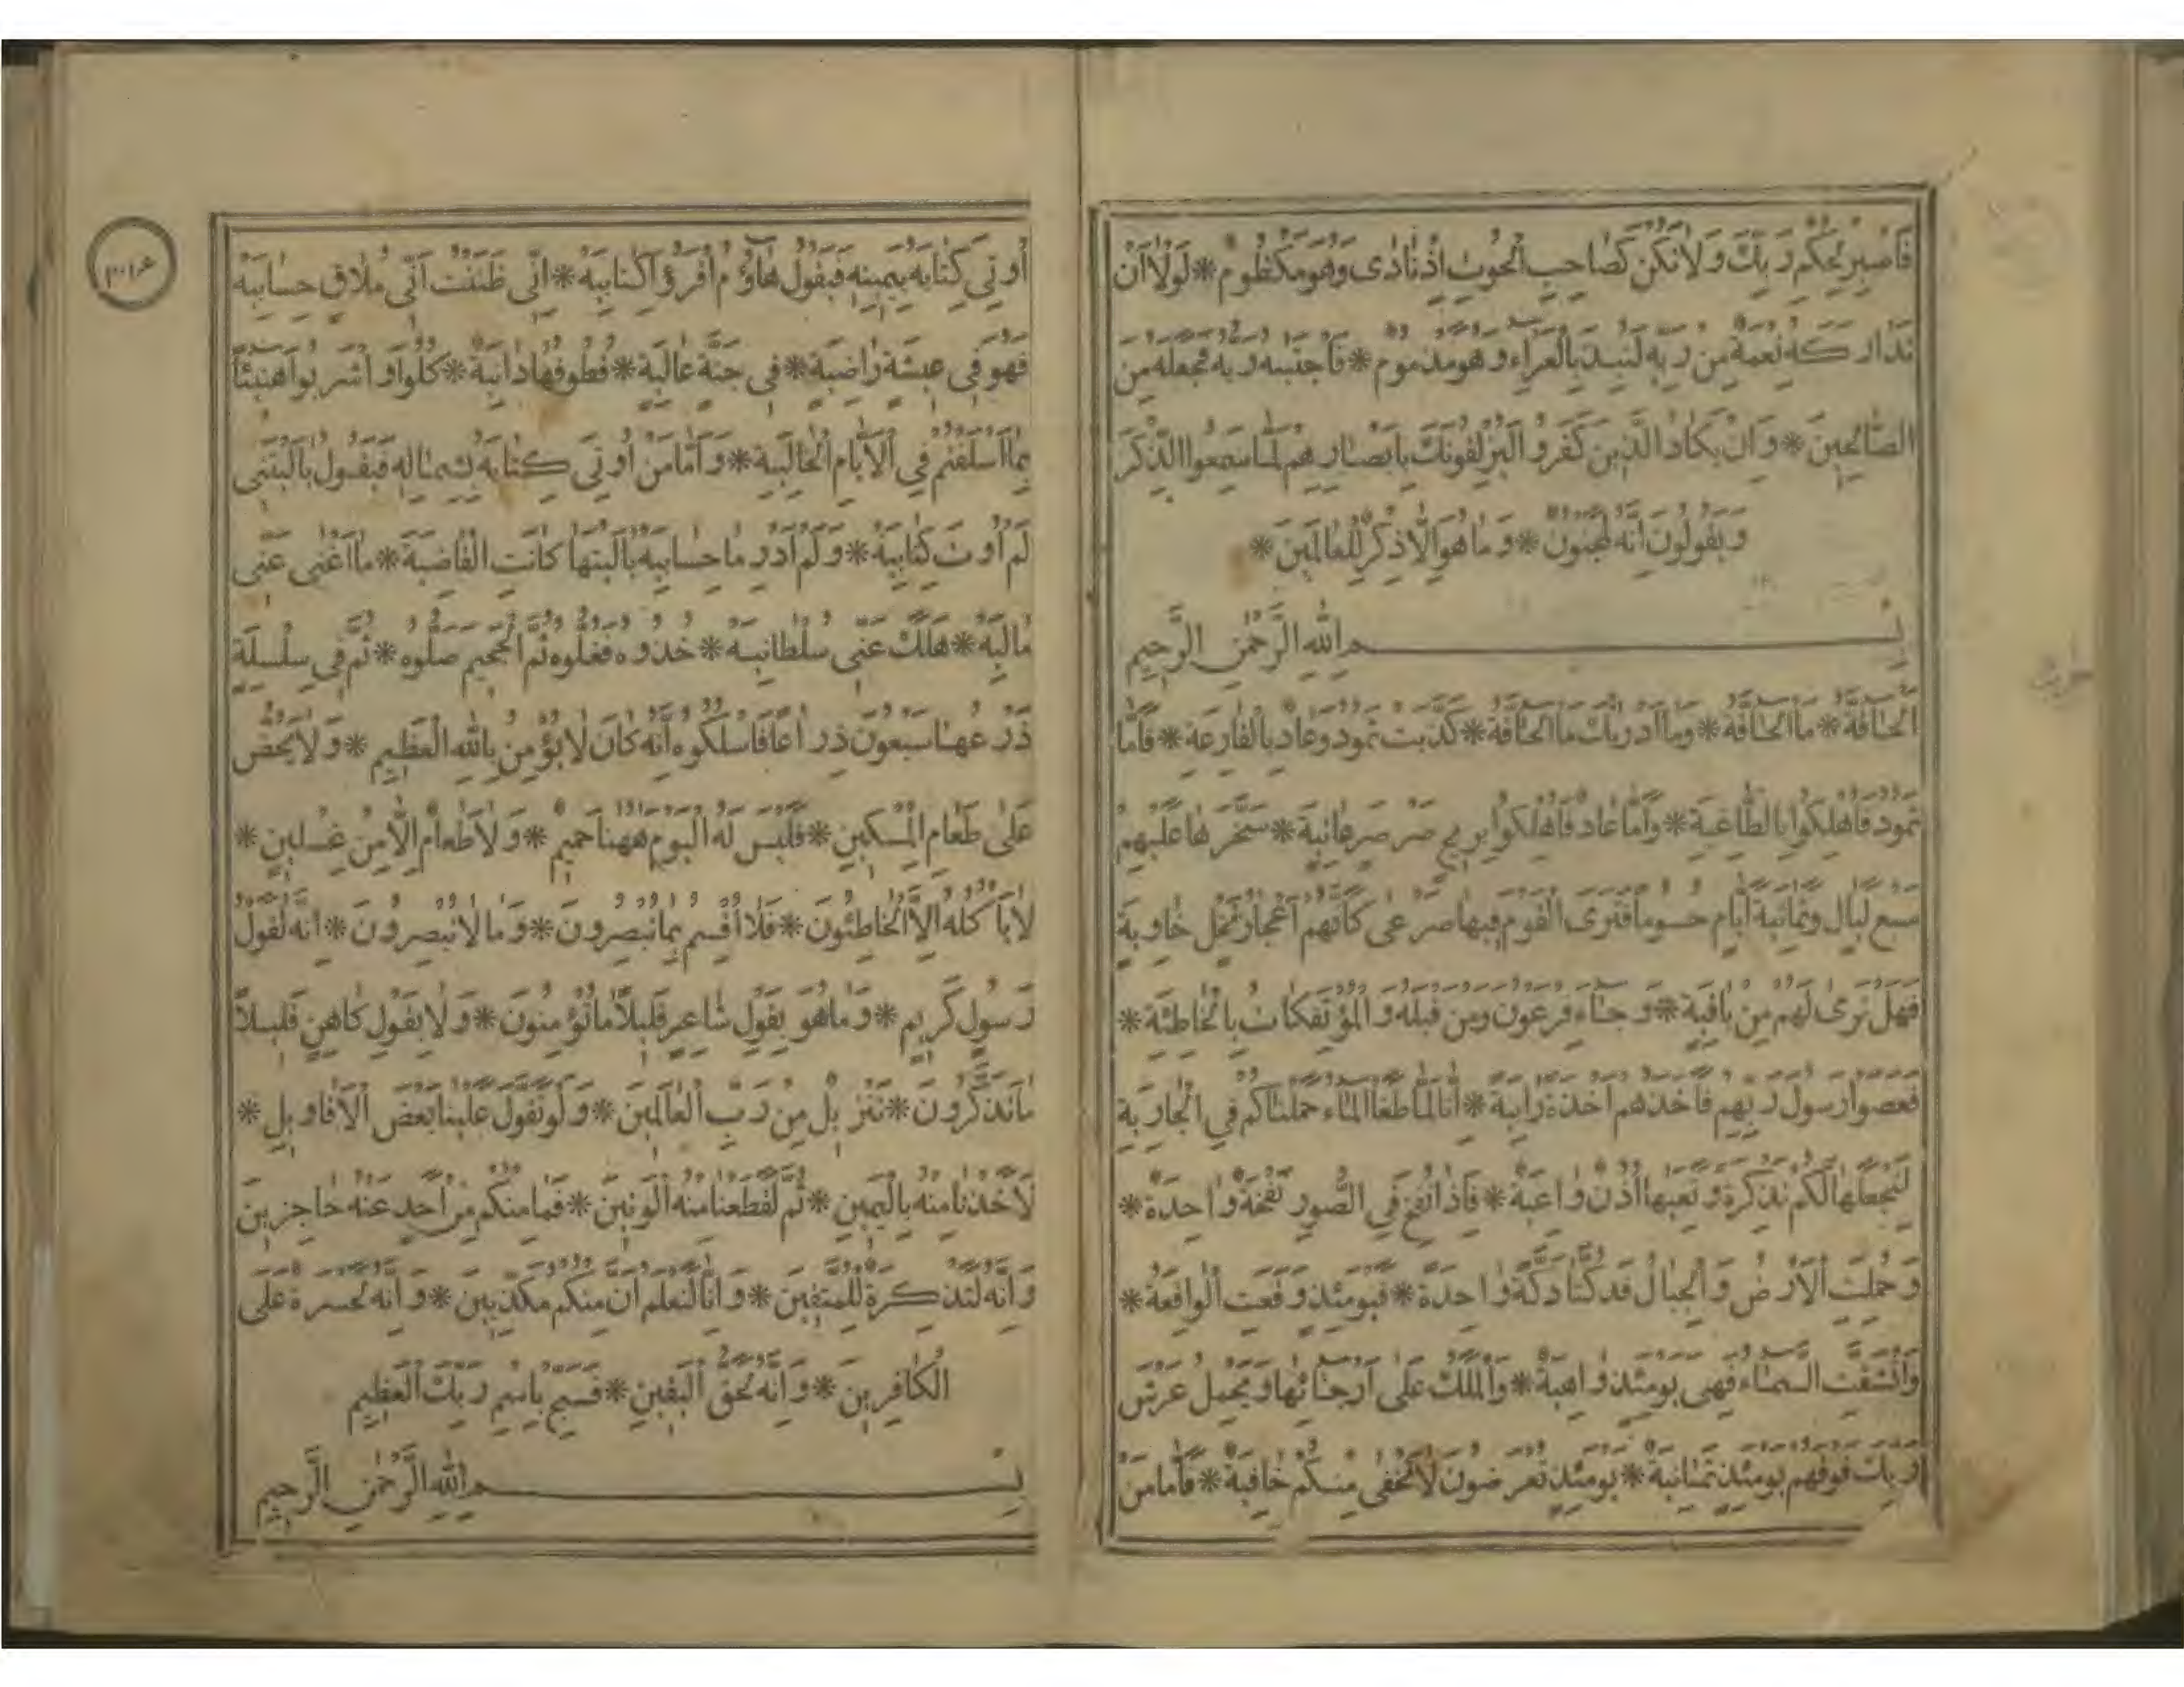 فَاصْبِرْ لِحُكْمِ رَبِّكَ وَلَا تَكُنْ كَصَاحِبِ الْحُوتِ إِذْ نَادٰى وَهُوَ مَكْظُومٌ * لَوْلَا أَنْ
تَدَارَكَهُ نِعْمَةٌ مِنْ رَبِّهِ لَنُبِذَ بِالْعَرَاءِ وَهُوَ مَذْمُومٌ * فَاجْتَبٰيهُ رَبُّهُ فَجَعَلَهُ مِنَ
الصَّالِحِينَ * وَإِنْ يَكَادُ الَّذِينَ كَفَرُوا لَيُزْلِقُونَكَ بِأَبْصَارِهِمْ لَمَّا سَمِعُوا الذِّكْرَ
وَيَقُولُونَ إِنَّهُ لَمَجْنُونٌ * وَمَا هُوَ إِلَّا ذِكْرٌ لِلْعَالَمِينَ *
بِسْمِ اللهِ الرَّحْمٰنِ الرَّحِيمِ
الْحَاقَّةُ * مَا الْحَاقَّةُ * وَمَا أَدْرٰيكَ مَا الْحَاقَّةُ * كَذَّبَتْ ثَمُودُ وَعَادٌ بِالْقَارِعَةِ * فَأَمَّا
ثَمُودُ فَأُهْلِكُوا بِالطَّاغِيَةِ * وَأَمَّا عَادٌ فَأُهْلِكُوا بِرِيحٍ صَرْصَرٍ عَاتِيَةٍ * سَخَّرَهَا عَلَيْهِمْ
سَبْعَ لَيَالٍ وَثَمَانِيَةَ أَيَّامٍ حُسُومًا فَتَرَى الْقَوْمَ فِيهَا صَرْعٰى كَأَنَّهُمْ أَعْجَازُ نَخْلٍ خَاوِيَةٍ
فَهَلْ تَرٰى لَهُمْ مِنْ بَاقِيَةٍ * وَجَاءَ فِرْعَوْنُ وَمَنْ قَبْلَهُ وَالْمُؤْتَفِكَاتُ بِالْخَاطِئَةِ *
فَعَصَوْا رَسُولَ رَبِّهِمْ فَأَخَذَهُمْ أَخْذَةً رَابِيَةً * إِنَّا لَمَّا طَغَا الْمَاءُ حَمَلْنَاكُمْ فِي الْجَارِيَةِ
لِنَجْعَلَهَا لَكُمْ تَذْكِرَةً وَتَعِيَهَا أُذُنٌ وَاعِيَةٌ * فَإِذَا نُفِخَ فِي الصُّورِ نَفْخَةٌ وَاحِدَةٌ *
وَحُمِلَتِ الْأَرْضُ وَالْجِبَالُ فَدُكَّتَا دَكَّةً وَاحِدَةً * فَيَوْمَئِذٍ وَقَعَتِ الْوَاقِعَةُ *
وَانْشَقَّتِ السَّمَاءُ فَهِيَ يَوْمَئِذٍ وَاهِيَةٌ * وَالْمَلَكُ عَلٰى أَرْجَائِهَا وَيَحْمِلُ عَرْشَ
رَبِّكَ فَوْقَهُمْ يَوْمَئِذٍ ثَمَانِيَةٌ * يَوْمَئِذٍ تُعْرَضُونَ لَا تَخْفٰى مِنْكُمْ خَافِيَةٌ * فَأَمَّا مَنْ
أُوتِيَ كِتَابَهُ بِيَمِينِهِ فَيَقُولُ هَاؤُمُ اقْرَؤُا كِتَابِيَهْ * إِنِّي ظَنَنْتُ أَنِّي مُلَاقٍ حِسَابِيَهْ
فَهُوَ فِي عِيشَةٍ رَاضِيَةٍ * فِي جَنَّةٍ عَالِيَةٍ * قُطُوفُهَا دَانِيَةٌ * كُلُوا وَاشْرَبُوا هَنِيئًا
بِمَا أَسْلَفْتُمْ فِي الْأَيَّامِ الْخَالِيَةِ * وَأَمَّا مَنْ أُوتِيَ كِتَابَهُ بِشِمَالِهِ فَيَقُولُ يَالَيْتَنِي
لَمْ أُوتَ كِتَابِيَهْ * وَلَمْ أَدْرِ مَا حِسَابِيَهْ يَالَيْتَهَا كَانَتِ الْقَاضِيَةَ * مَا أَغْنٰى عَنِّي
مَالِيَهْ * هَلَكَ عَنِّي سُلْطَانِيَهْ * خُذُوهُ فَغُلُّوهُ ثُمَّ الْجَحِيمَ صَلُّوهُ * ثُمَّ فِي سِلْسِلَةٍ
ذَرْعُهَا سَبْعُونَ ذِرَاعًا فَاسْلُكُوهُ إِنَّهُ كَانَ لَا يُؤْمِنُ بِاللهِ الْعَظِيمِ * وَلَا يَحُضُّ
عَلٰى طَعَامِ الْمِسْكِينِ * فَلَيْسَ لَهُ الْيَوْمَ هٰهُنَا حَمِيمٌ * وَلَا طَعَامٌ إِلَّا مِنْ غِسْلِينٍ *
لَا يَأْكُلُهُ إِلَّا الْخَاطِئُونَ * فَلَا أُقْسِمُ بِمَا تُبْصِرُونَ * وَمَا لَا تُبْصِرُونَ * إِنَّهُ لَقَوْلُ
رَسُولٍ كَرِيمٍ * وَمَا هُوَ بِقَوْلِ شَاعِرٍ قَلِيلًا مَا تُؤْمِنُونَ * وَلَا بِقَوْلِ كَاهِنٍ قَلِيلًا
مَا تَذَكَّرُونَ * تَنْزِيلٌ مِنْ رَبِّ الْعَالَمِينَ * وَلَوْ تَقَوَّلَ عَلَيْنَا بَعْضَ الْأَقَاوِيلِ *
لَأَخَذْنَا مِنْهُ بِالْيَمِينِ * ثُمَّ لَقَطَعْنَا مِنْهُ الْوَتِينَ * فَمَا مِنْكُمْ مِنْ أَحَدٍ عَنْهُ حَاجِزِينَ
وَإِنَّهُ لَتَذْكِرَةٌ لِلْمُتَّقِينَ * وَإِنَّا لَنَعْلَمُ أَنَّ مِنْكُمْ مُكَذِّبِينَ * وَإِنَّهُ لَحَسْرَةٌ عَلَى
الْكَافِرِينَ * وَإِنَّهُ لَحَقُّ الْيَقِينِ * فَسَبِّحْ بِاسْمِ رَبِّكَ الْعَظِيمِ
بِسْمِ اللهِ الرَّحْمٰنِ الرَّحِيمِ